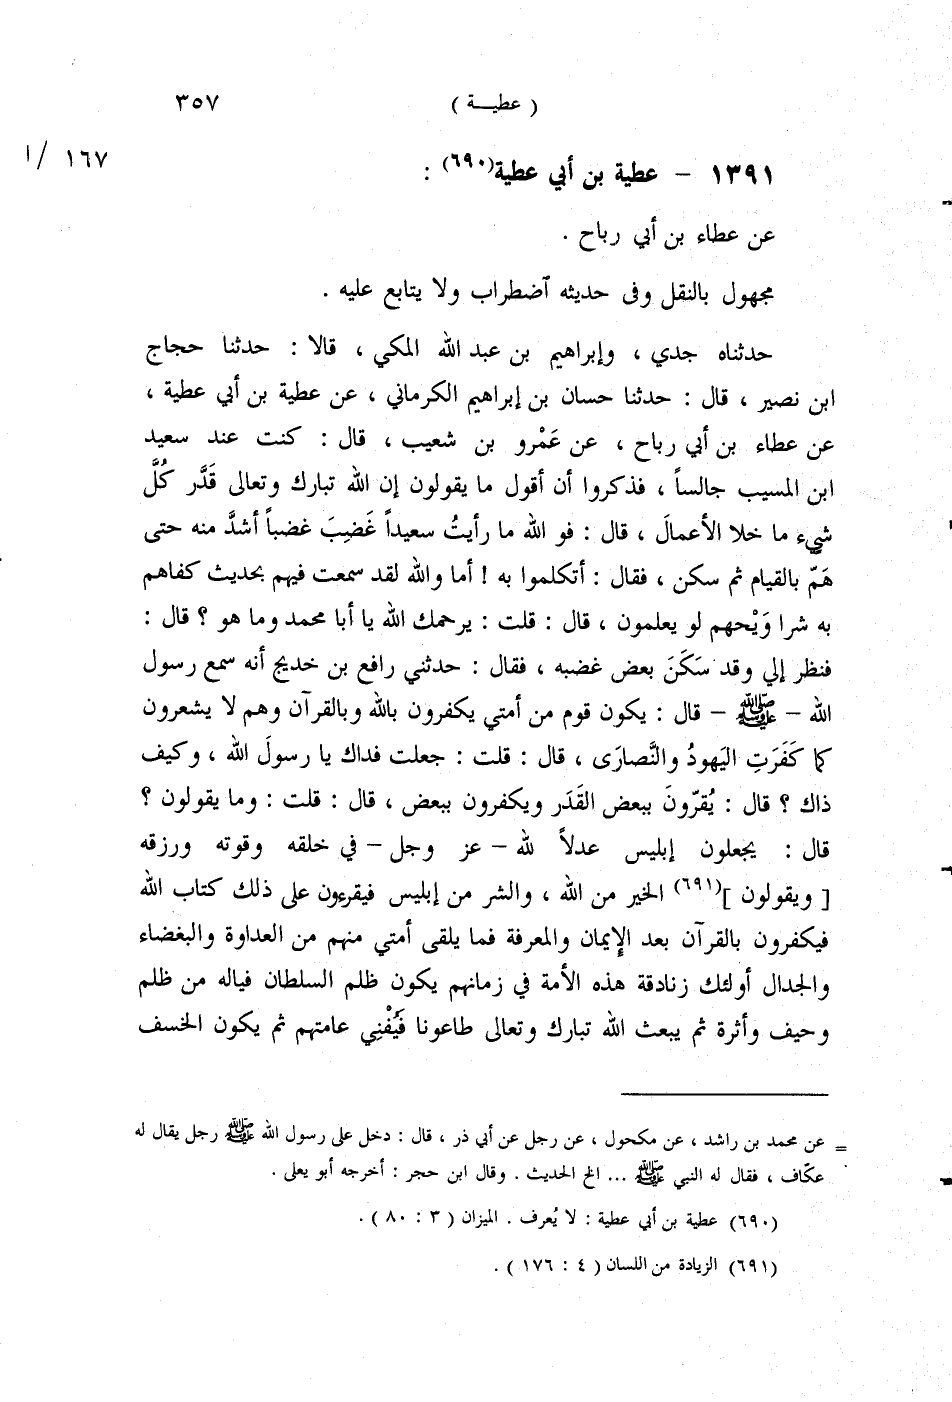 ( عطيـــة ) ٣٥٧
١٦٧ /ا
١٣٩١ – عطية بن أبي عطية(٦٩٠) :
عن عطاء بن أبي رباح .
مجهول بالنقل وفى حديثه آضطراب ولا يتابع عليه .
حدثناه جدي ، وإبراهيم بن عبد الله المكي ، قالا : حدثنا حجاج
ابن نصير ، قال : حدثنا حسان بن إبراهيم الكرماني ، عن عطية بن أبي عطية ،
عن عطاء بن أبي رباح ، عن عَمْرو بن شعيب ، قال : كنت عند سعيد
ابن المسيب جالساً ، فذكروا أن أقول ما يقولون إن الله تبارك وتعالى قَدَّر كُلَّ
شيء ما خلا الأعمالَ ، قال : فو الله ما رأيتُ سعيداً غَضِبَ غضباً أشدَّ منه حتى
هَمّ بالقيام ثم سكن ، فقال : أتكلموا به ! أما والله لقد سمعت فيهم بحديث كفاهم
به شرا وَيْحهم لو يعلمون ، قال : قلت : يرحمك الله يا أبا محمد وما هو ؟ قال :
فنظر إلي وقد سَكَنَ بعض غضبه ، فقال : حدثني رافع بن خديج أنه سمع رسول
الله – ﷺ – قال : يكون قوم من أمتي يكفرون بالله وبالقرآن وهم لا يشعرون
كما كَفَرَتِ اليَهودُ والنَّصارَى ، قال : قلت : جعلت فداك يا رسولَ الله ، وكيف
ذاك ؟ قال : يُقرّونَ ببعض القَدَر ويكفرون ببعض ، قال : قلت : وما يقولون ؟
قال : يجعلون إبليس عدلاً لله – عز وجل – في خلقه وقوته ورزقه
[ ويقولون ](٦٩١) الخير من الله ، والشر من إبليس فيقرءون على ذلك كتاب الله
فيكفرون بالقرآن بعد الإيمان والمعرفة فما يلقى أمتي منهم من العداوة والبغضاء
والجدال أولئك زنادقة هذه الأمة في زمانهم يكون ظلم السلطان فياله من ظلم
وحيف وأثرة ثم يبعث الله تبارك وتعالى طاعونا فَيُفْنِي عامتهم ثم يكون الخسف
= عن محمد بن راشد ، عن مكحول ، عن رجل عن أبي ذر ، قال : دخل على رسول الله ﷺ رجل يقال له
عكّاف ، فقال له النبي ﷺ ... الخ الحديث . وقال ابن حجر : أخرجه أبو يعلى .
(٦٩٠) عطية بن أبي عطية : لا يُعرف . الميزان ( ٣ : ٨٠ ) .
(٦٩١) الزيادة من اللسان ( ٤ : ١٧٦ ) .